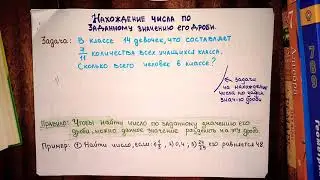 Нахождение числа по
заданному значению его дроби.
Задача: В классе 14 девочек, что составляет
7/11 количества всех учащихся класса.
Сколько всего человек в классе?
задачи
на нахождение
числа по
дроби
Правило: Чтобы найти число по заданному значению его
дроби, можно данное значение разделить на эту дробь.
Пример: ① Найти число, если: 0,4
его равняется 48